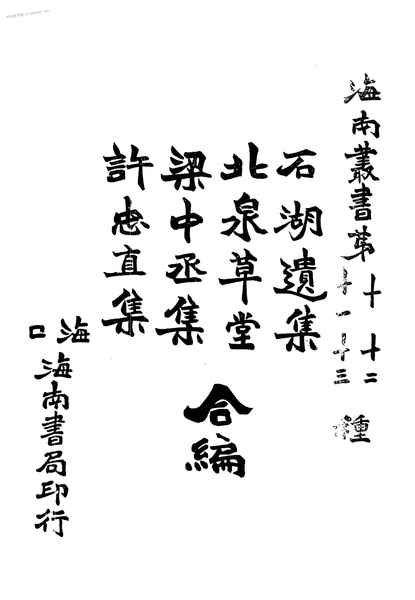 海南叢書第
十 十二
十一 十三
種
石湖遺集
北泉草堂
梁中丞集
許忠直集
合編
海口
海南書局印行